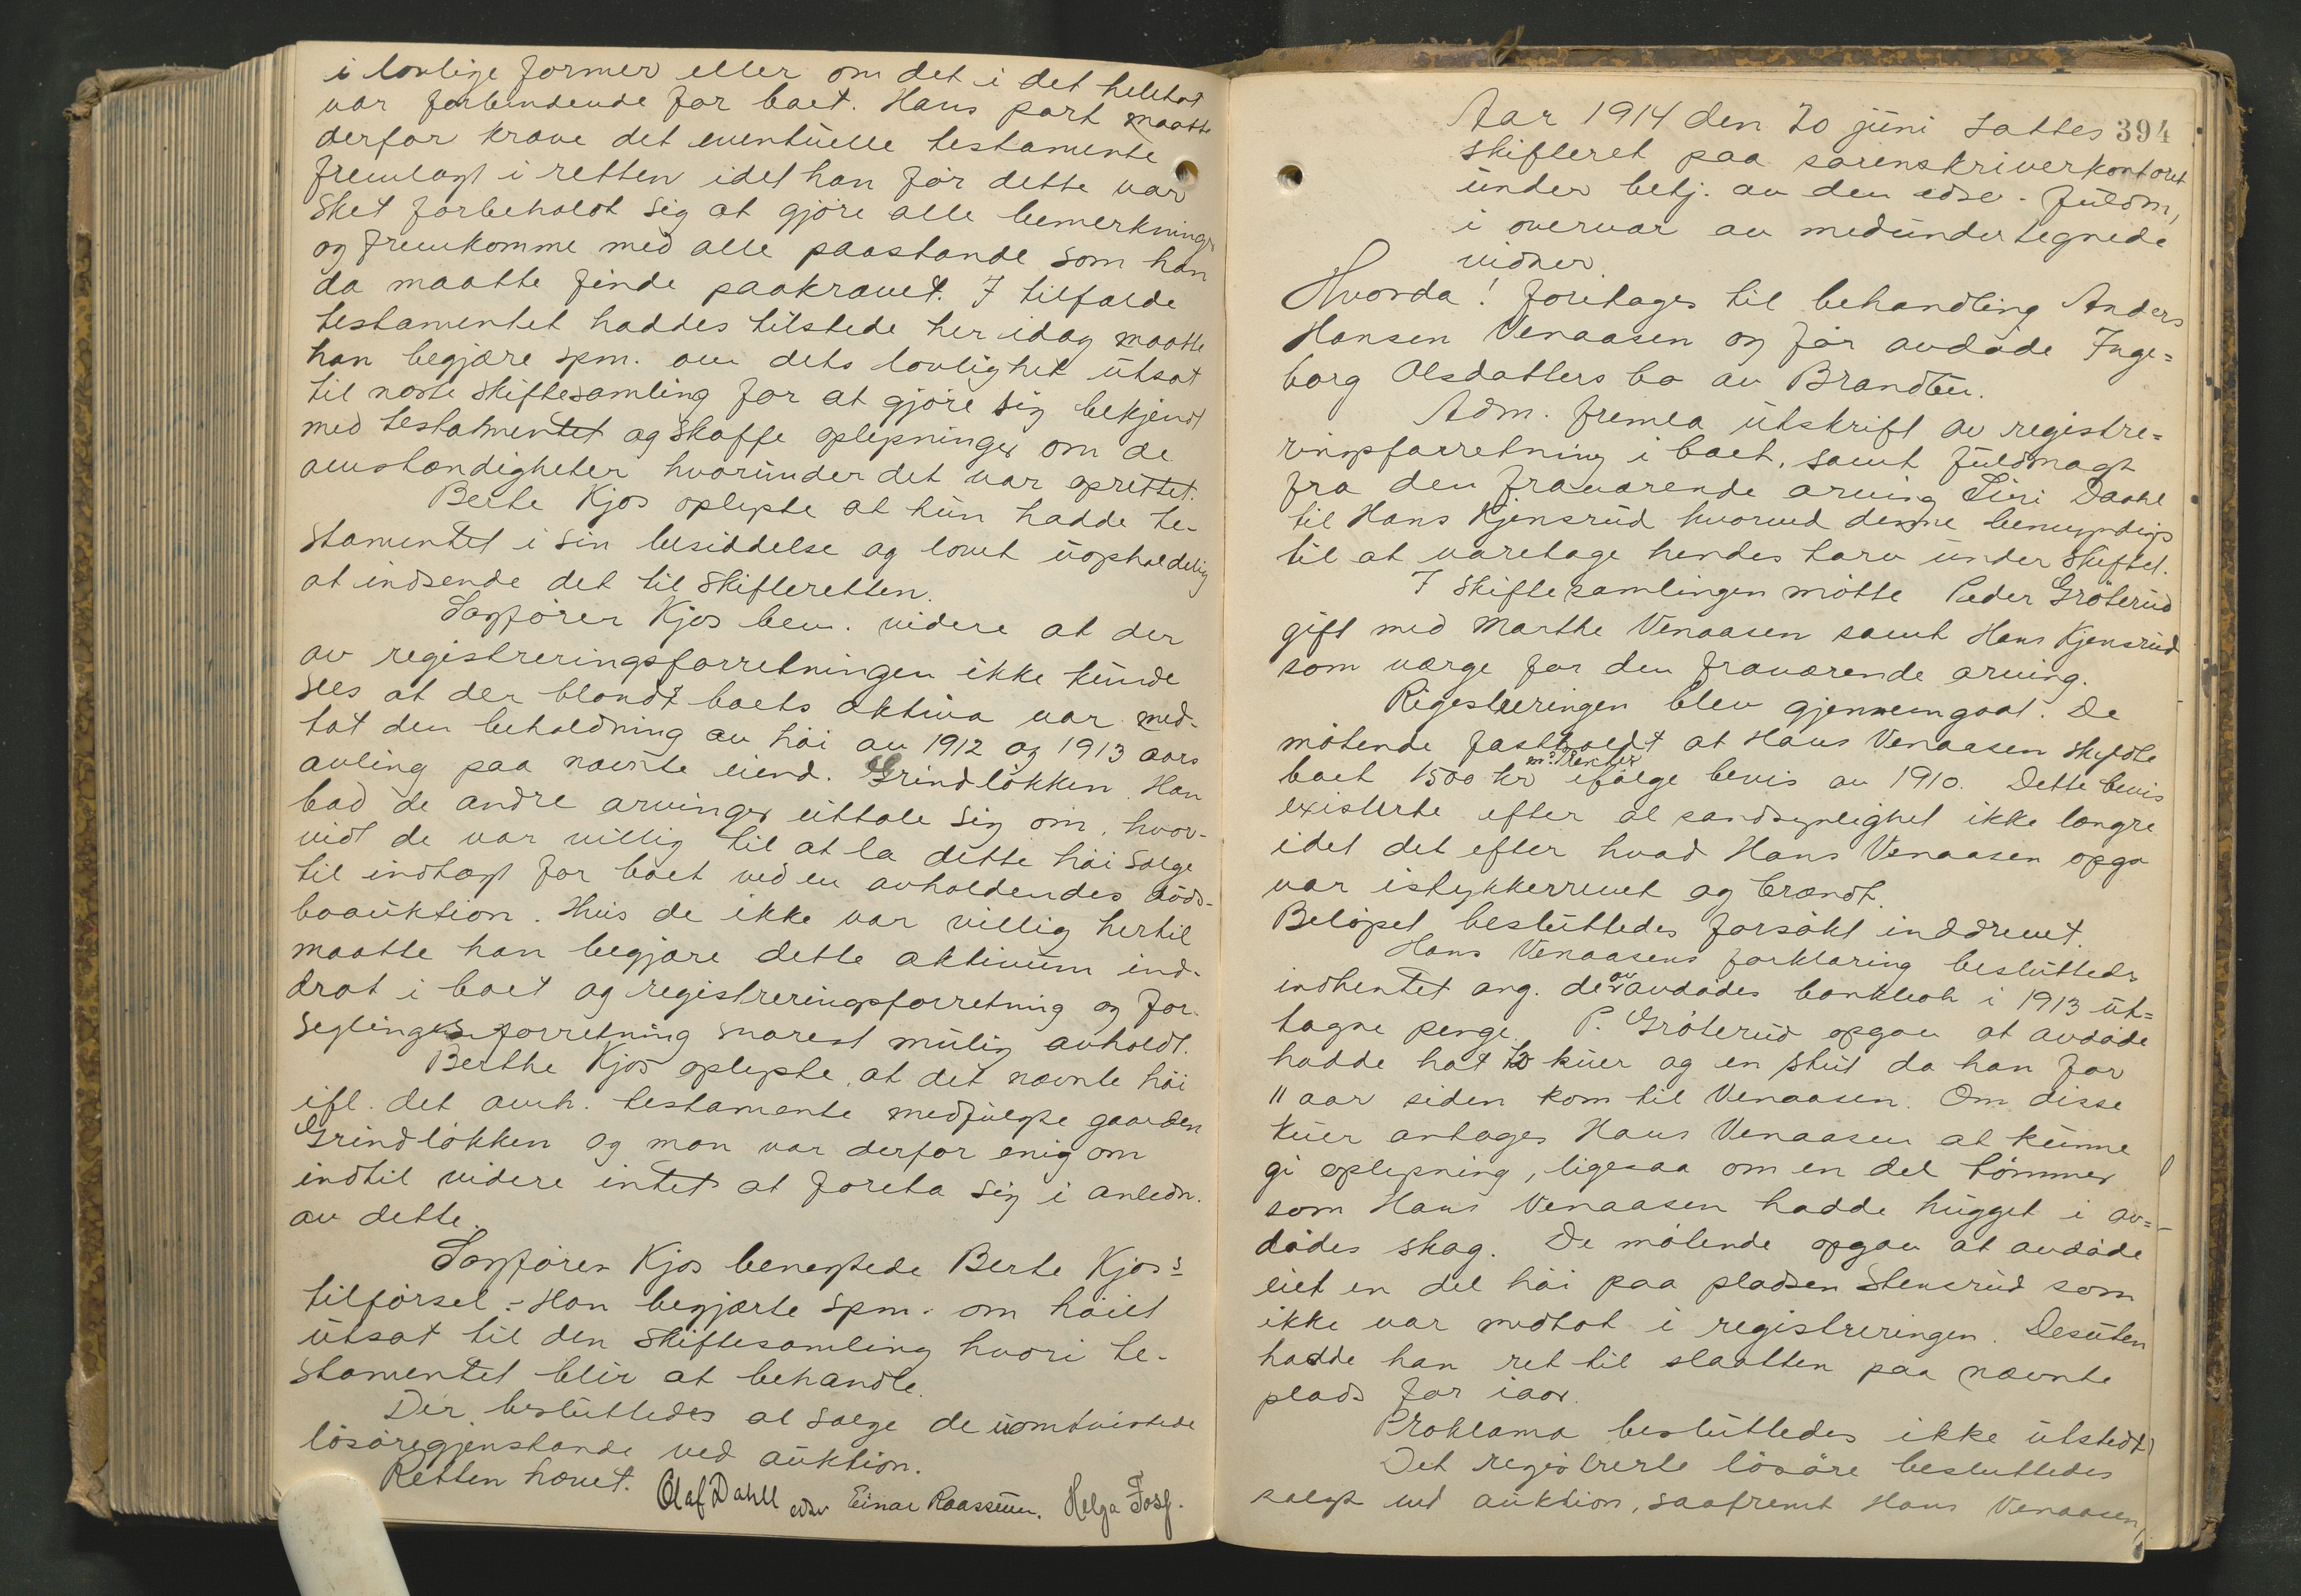 i lovlige former eller om det i det heletat
var forbindende for boet. Hans part maatte
derfor kræve det eventuelle testamente
fremlagt i retten idet han før dette var
sket forbeholdt sig at gjøre alle bemerkninger
og fremkomme med alle paastande som han
da maatte finde paakrævet. I tilfælde
testamentet haddes tilstede her idag maatte
han begjære spm. om dets lovlighet utsat
til næste skiftesamling for at gjøre sig bekjendt
med testamentet og skaffe oplysninger om de
omstændigheter hvorunder det var oprettet.
Berte Kjos oplyste at hun hadde te-
stamentet i sin besiddelse og lovet uopholdelig
at indsende det til skifteretten.
Sagfører Kjos bem. videre at der
av registreringsforretningen ikke kunde
sees at der blandt boets aktiva var med-
tat den beholdning av høi av 1912 og 1913 aars
avling paa nævnte eiend. Grindløkken. Han
bad de andre arvinger uttale sig om, hvor-
vidt de var villig til at la dette høi sælge
til indtægt for boet ved en avholdendes døds-
boauktion. Hvis de ikke var villig hertil
maatte han begjære dette aktivum ind-
drat i boet og registreringsforretning og for-
seglingsforretning snarest mulig avholdt.
Berthe Kjos oplyste, at det nævnte høi
ifl. det omh. testamente medfulgte gaarden
Grindløkken og man var derfor enig om
indtil videre intet at foreta sig i anledn.
av dette.
Sagfører Kjos benegtede Berte Kjos's
tilførsel. Han begjærte spm. om høiet
utsat til den skiftesamling hvori te-
stamentet blir at behandle.
Der besluttedes at sælge de uomtvistede
løsøregjenstande ved auktion.
Retten hævet. Olaf Dahll edsv Einar Raassum. Helga Fosf.
Aar 1914 den 20 juni sattes 394
skifteret paa sorenskriverkontoret
under betj. av den edsv. fuldm,
i overvær av medundertegnede
vidner.
Hvorda! foretages til behandling Anders
Hansen Venaasen og før avdøde Inge=
borg Olsdatters bo av Brandbu.
Adm. fremla utskrift av registre=
ringsforretning i boet, samt fuldmagt
fra den fraværende arving Siri Daahl
til Hans Kjensrud hvorved denne bemyndiges
til at varetage hendes tarv under skiftet.
I skiftesamlingen møtte Peder Grøterud
gift med Marthe Venaasen samt Hans Kjensrud
som værge for den fraværende arving.
Rigestreringen blev gjennemgaat. De
møtende fastholdt at Hans Venaasen skyldte
boet 1500 kr m. renter ifølge bevis av 1910. Dette bevis
existerte efter al sandsynlighet ikke længre
idet det efter hvad Hans Venaasen opga
var istykkerrevet og brændt.
Beløpet besluttedes forsøkt inddrevet.
Hans Venaasens forklaring besluttedes
indhentet ang. de av avdødes bankbok i 1913 ut=
tagne penge. P. Grøterud opgav at avdøde
hadde hat to kuer og en stut da han for
11 aar siden kom til Venaasen. Om disse
kuer antages Hans Venaasen at kunne
gi oplysning, ligesaa om en del tømmer
som Hans Venaasen hadde hugget i av=
dødes skog. De møtende opgav at avdøde
eiet en del høi paa pladsen Stensrud som
ikke var medtat i registreringen. Desuten
hadde han ret til slaatten paa nævnte
plads for iaar.
Proklama besluttedes ikke utstedt.
Det registrerte løsøre besluttedes
solgt ved auktion, saafremt Hans Venaasen,